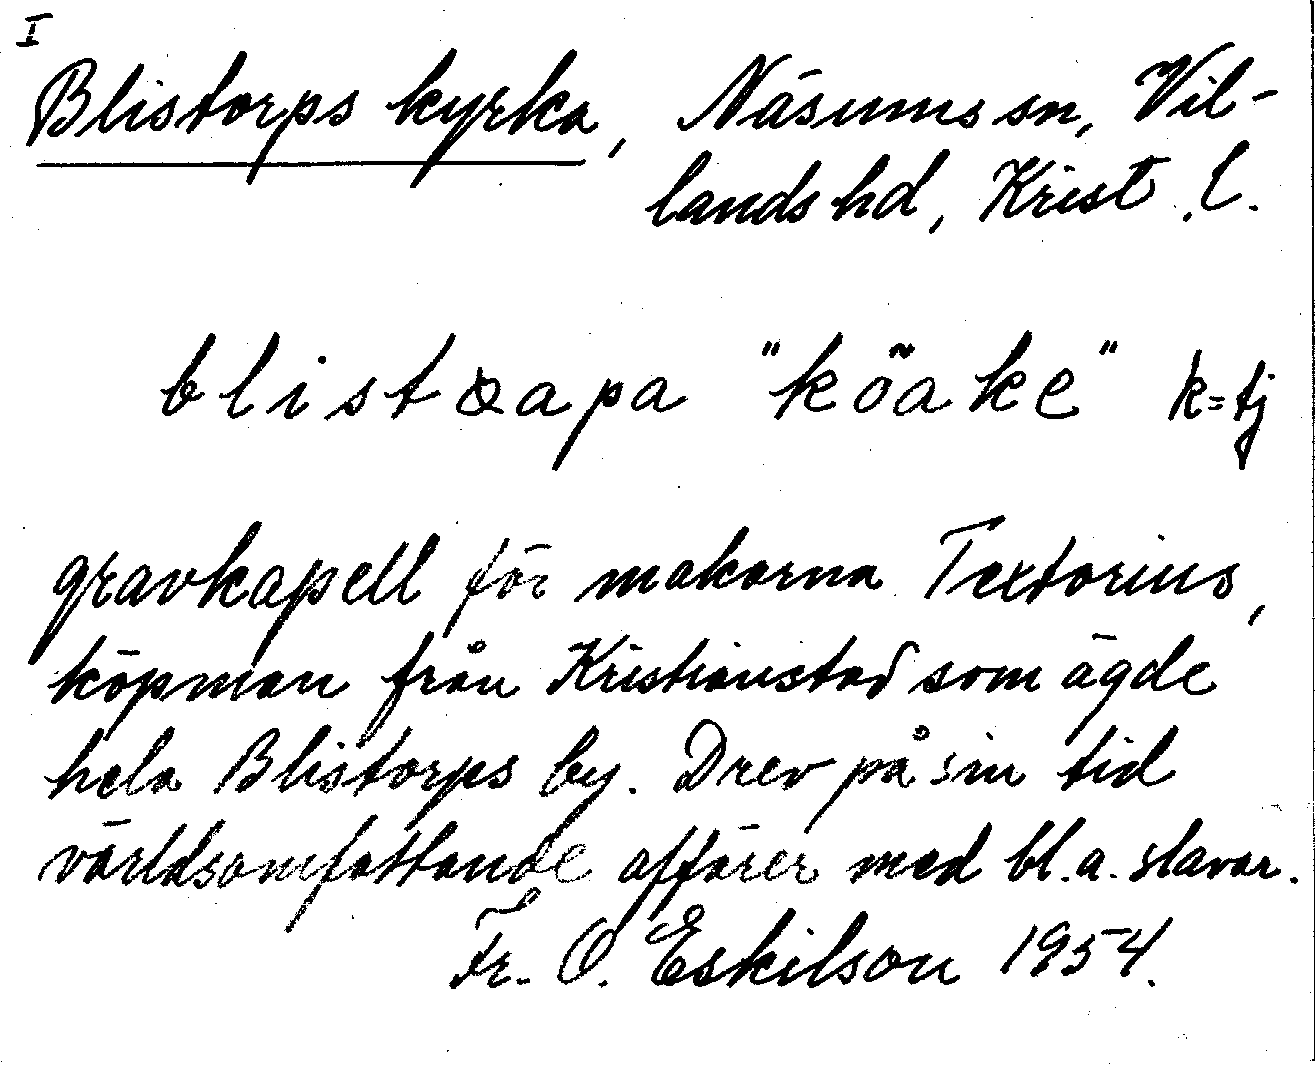 I
Blistorps kyrka, Näsums sn, Vil-
lands hd, Krist. l.
blistɷapa "kõake" k=tj
gravkapell för makarna Textorius,
köpman från Kristianstad som ägde
hela Blistorps by. Drev på sin tid
världsomfattande affärer med bl.a. slavar.
Fr. O. Eskilson 1954.